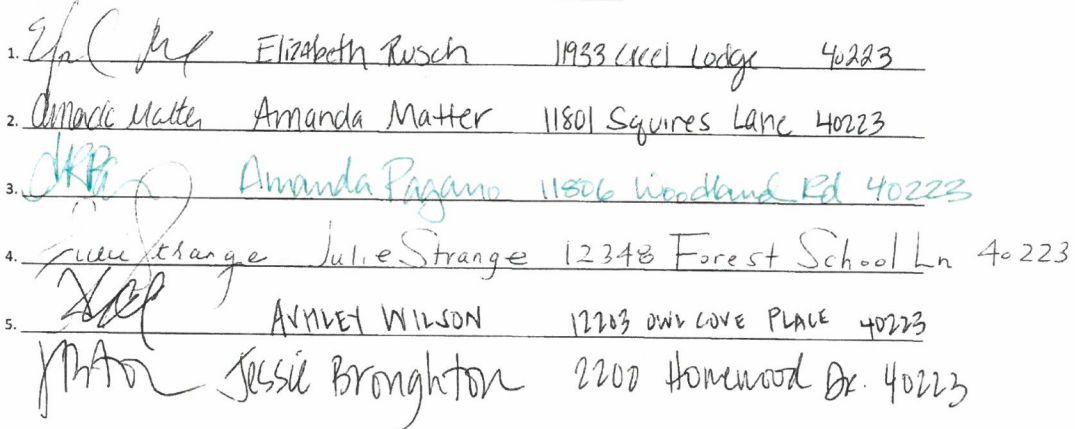 1. Elizabeth Rusch 11933 Creel Lodge 40223
2. Amanda Matter Amanda Matter 11801 Squires Lane 40223
3. Amanda Pagano 11806 Woodland Rd 40223
4. Strange Julie Strange 12348 Forest School Ln 40223
5. ASHLEY WILSON 12203 OWL COVE PLACE 40223
Jessie Broughton 2200 Homewood Dr. 40223